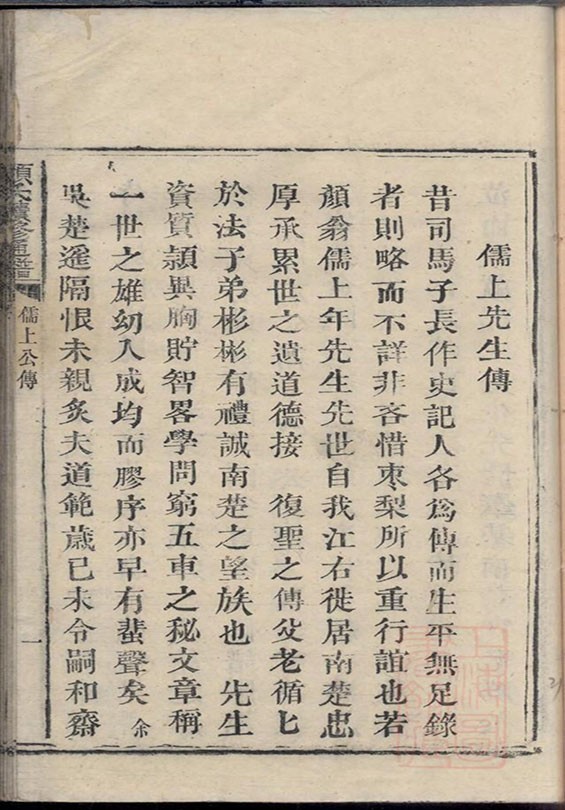 儒上先生傳
昔司馬子長作史記人各爲傳而生平無足錄
者則略而不詳非吝惜枣梨所以重行誼也若
顏翁儒上年先生先世自我江右徙居南楚忠
厚承累世之遺道德接 復聖之傳父老循匕
於法子弟彬彬有禮誠南楚之望族也 先生
資質頴異胸貯智畧學問窮五車之秘文章稱
一世之雄幼入成均而膠序亦早有蜚聲矣 余
吳楚遥隔恨未親炙夫道範歲己未令嗣和齋
修通譜
儒上公傳
一